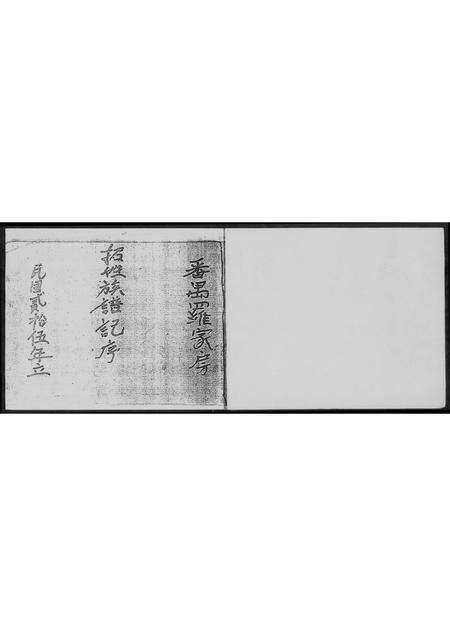 番禺羅家房
招姓族譜記序
民國貳拾伍年立